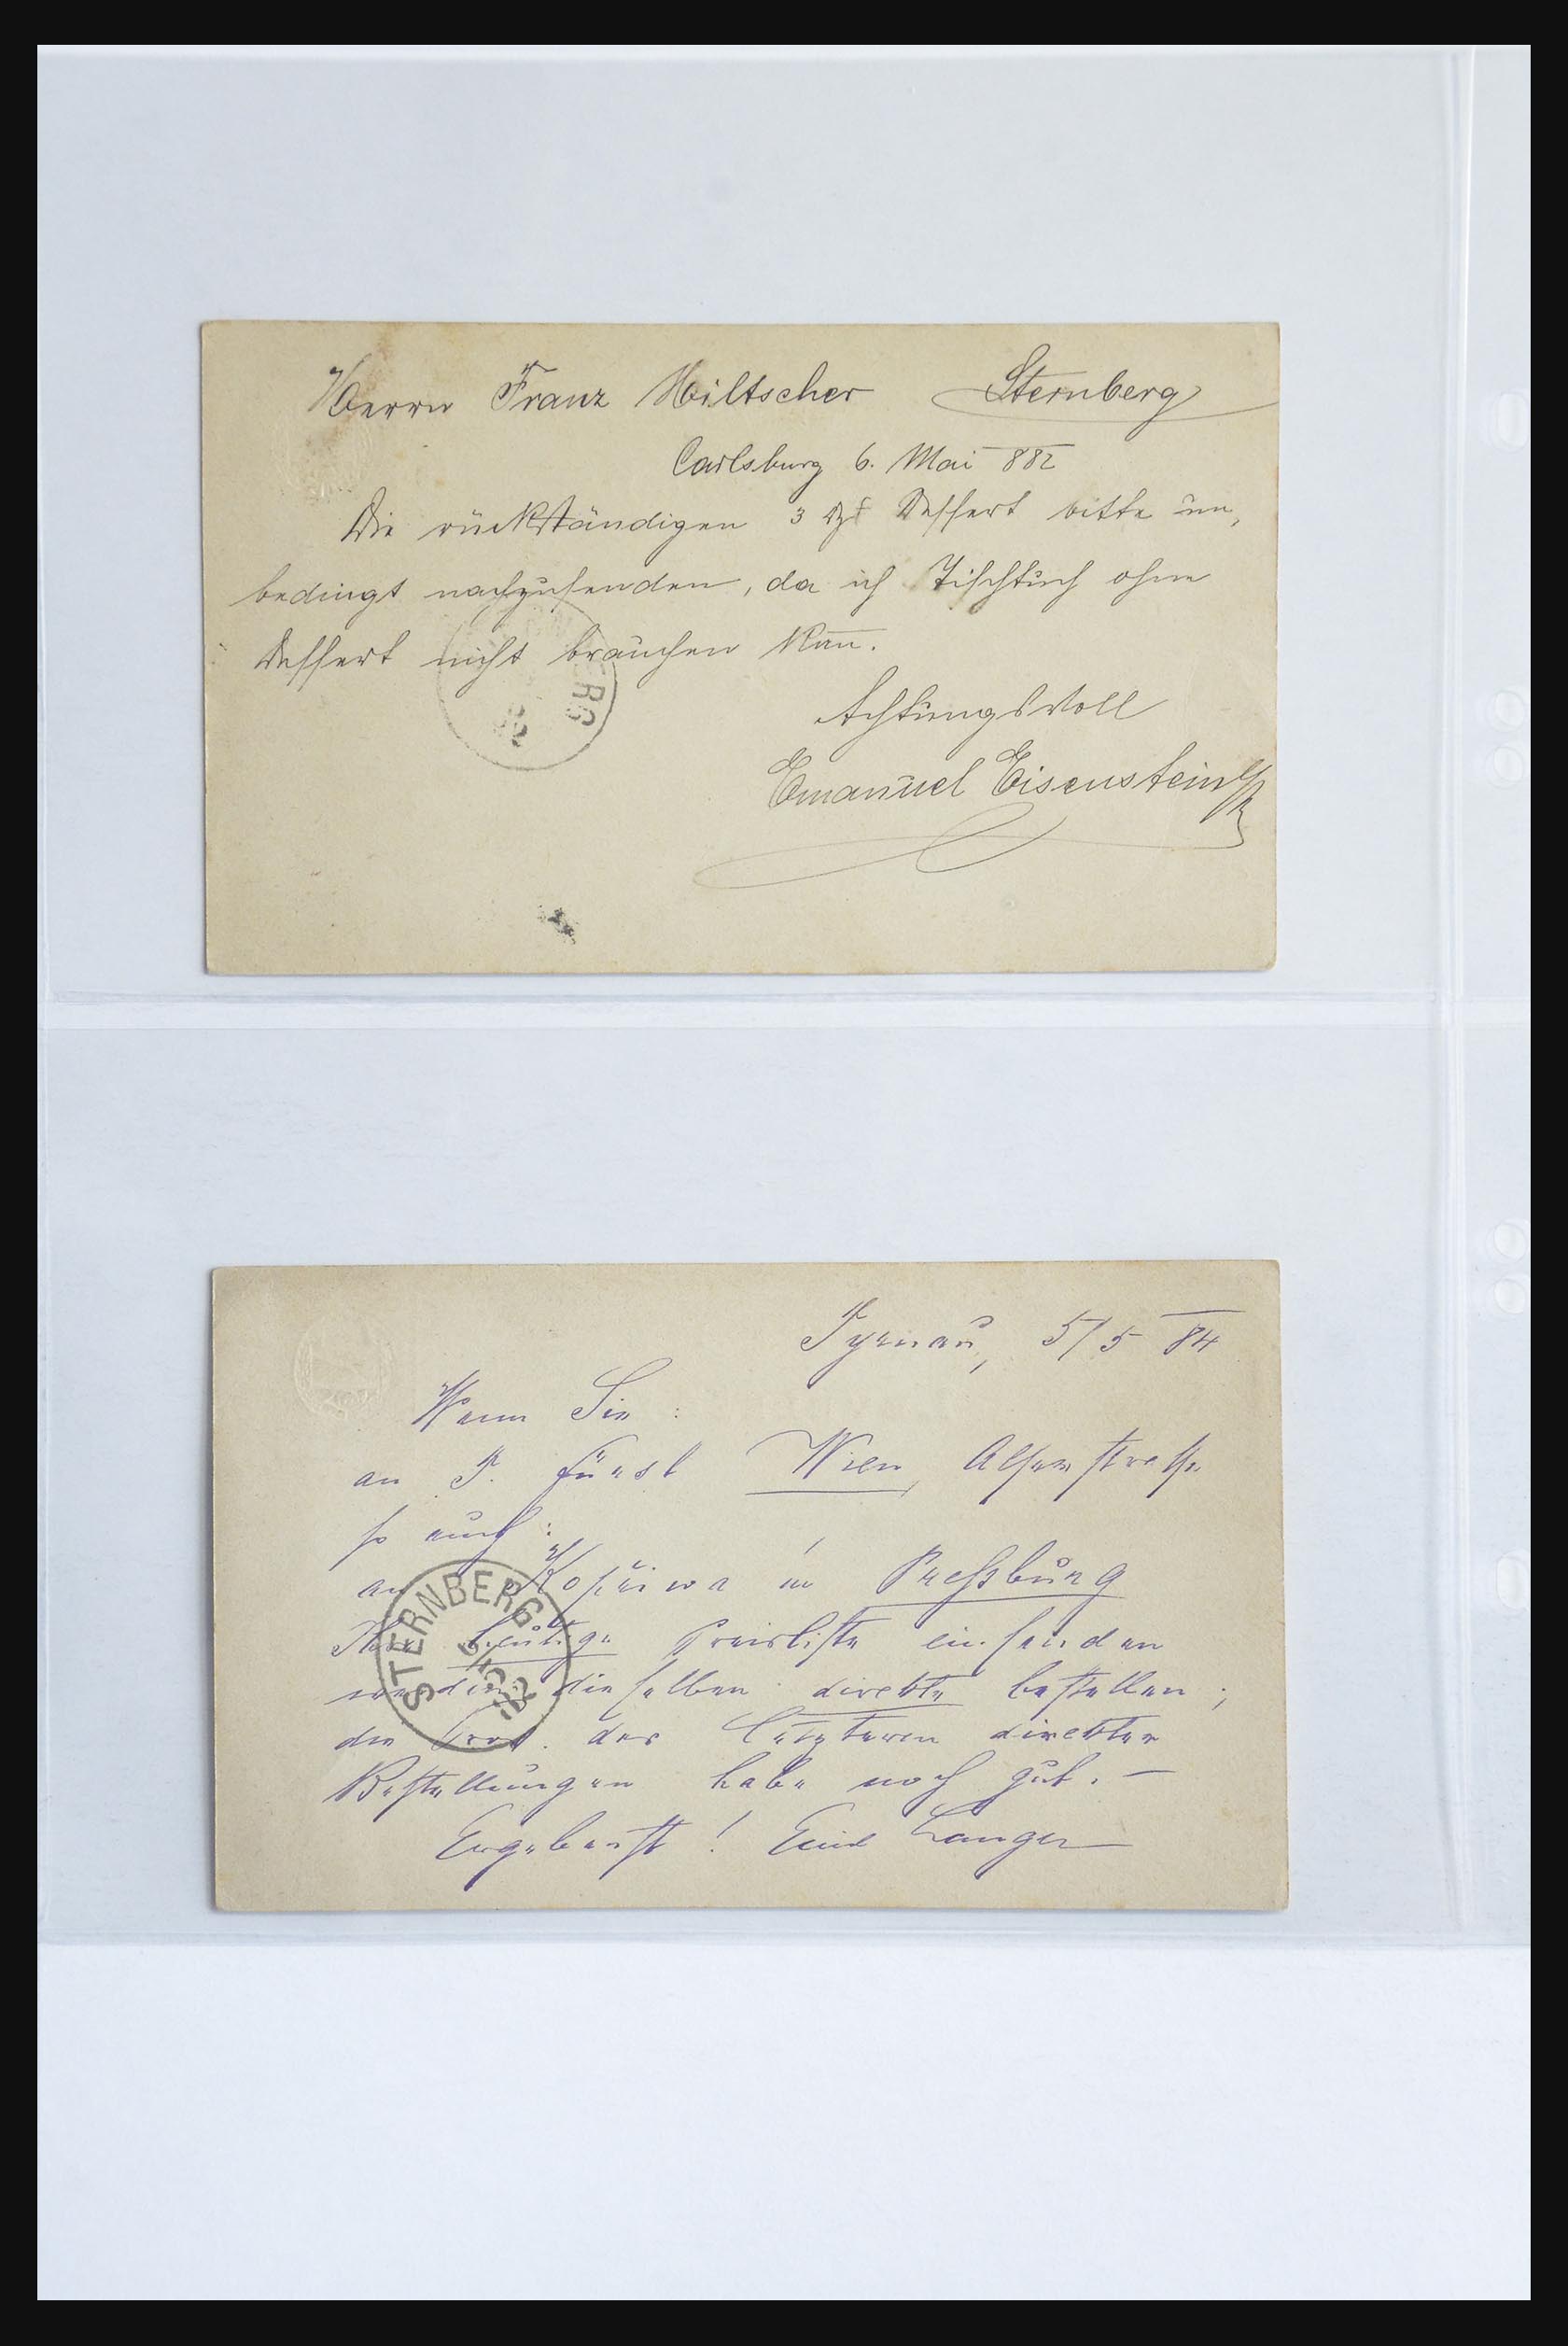 Herrn Franz Hiltscher Sternberg
Carlsburg 6. Mai 882
Die rückständigen 3 Dz Dessert bitte un,
bedingt nachzusenden, da ich Tischtuch ohne
Dessert nicht brauchen kan̄.
Achtungsvoll
Emanuel Eisenstein
RG
82
Tyrnau, 5/5 84
Wenn Sie :
an J. Fürst Wien, Alserstrasse
so auch :
an in Pressburg
Ihre heutige Preisliste einsenden
werden dieselben direkte bestellen ;
die Prov. der letzteren direkten
Bestellungen habe noch gut. —
Ergebenst ! Emil Langer
STERNBERG